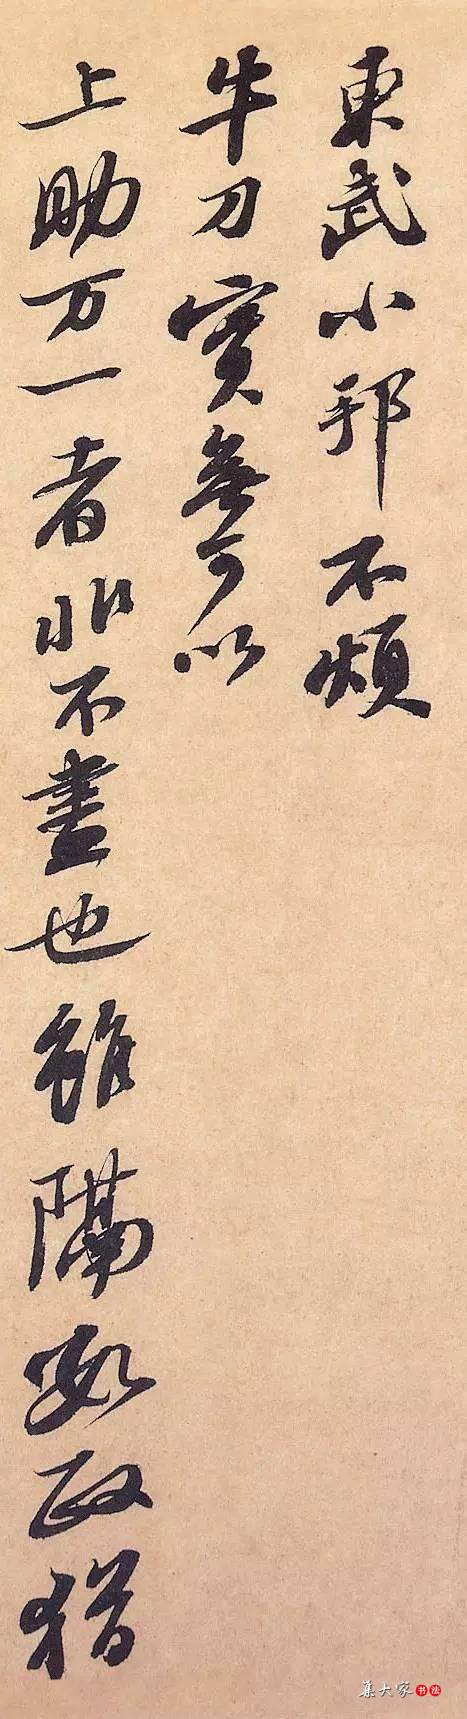 東武小邦不煩
牛刀實無可以
上助万一者非不盡也雖隔數政猶
集大家書法